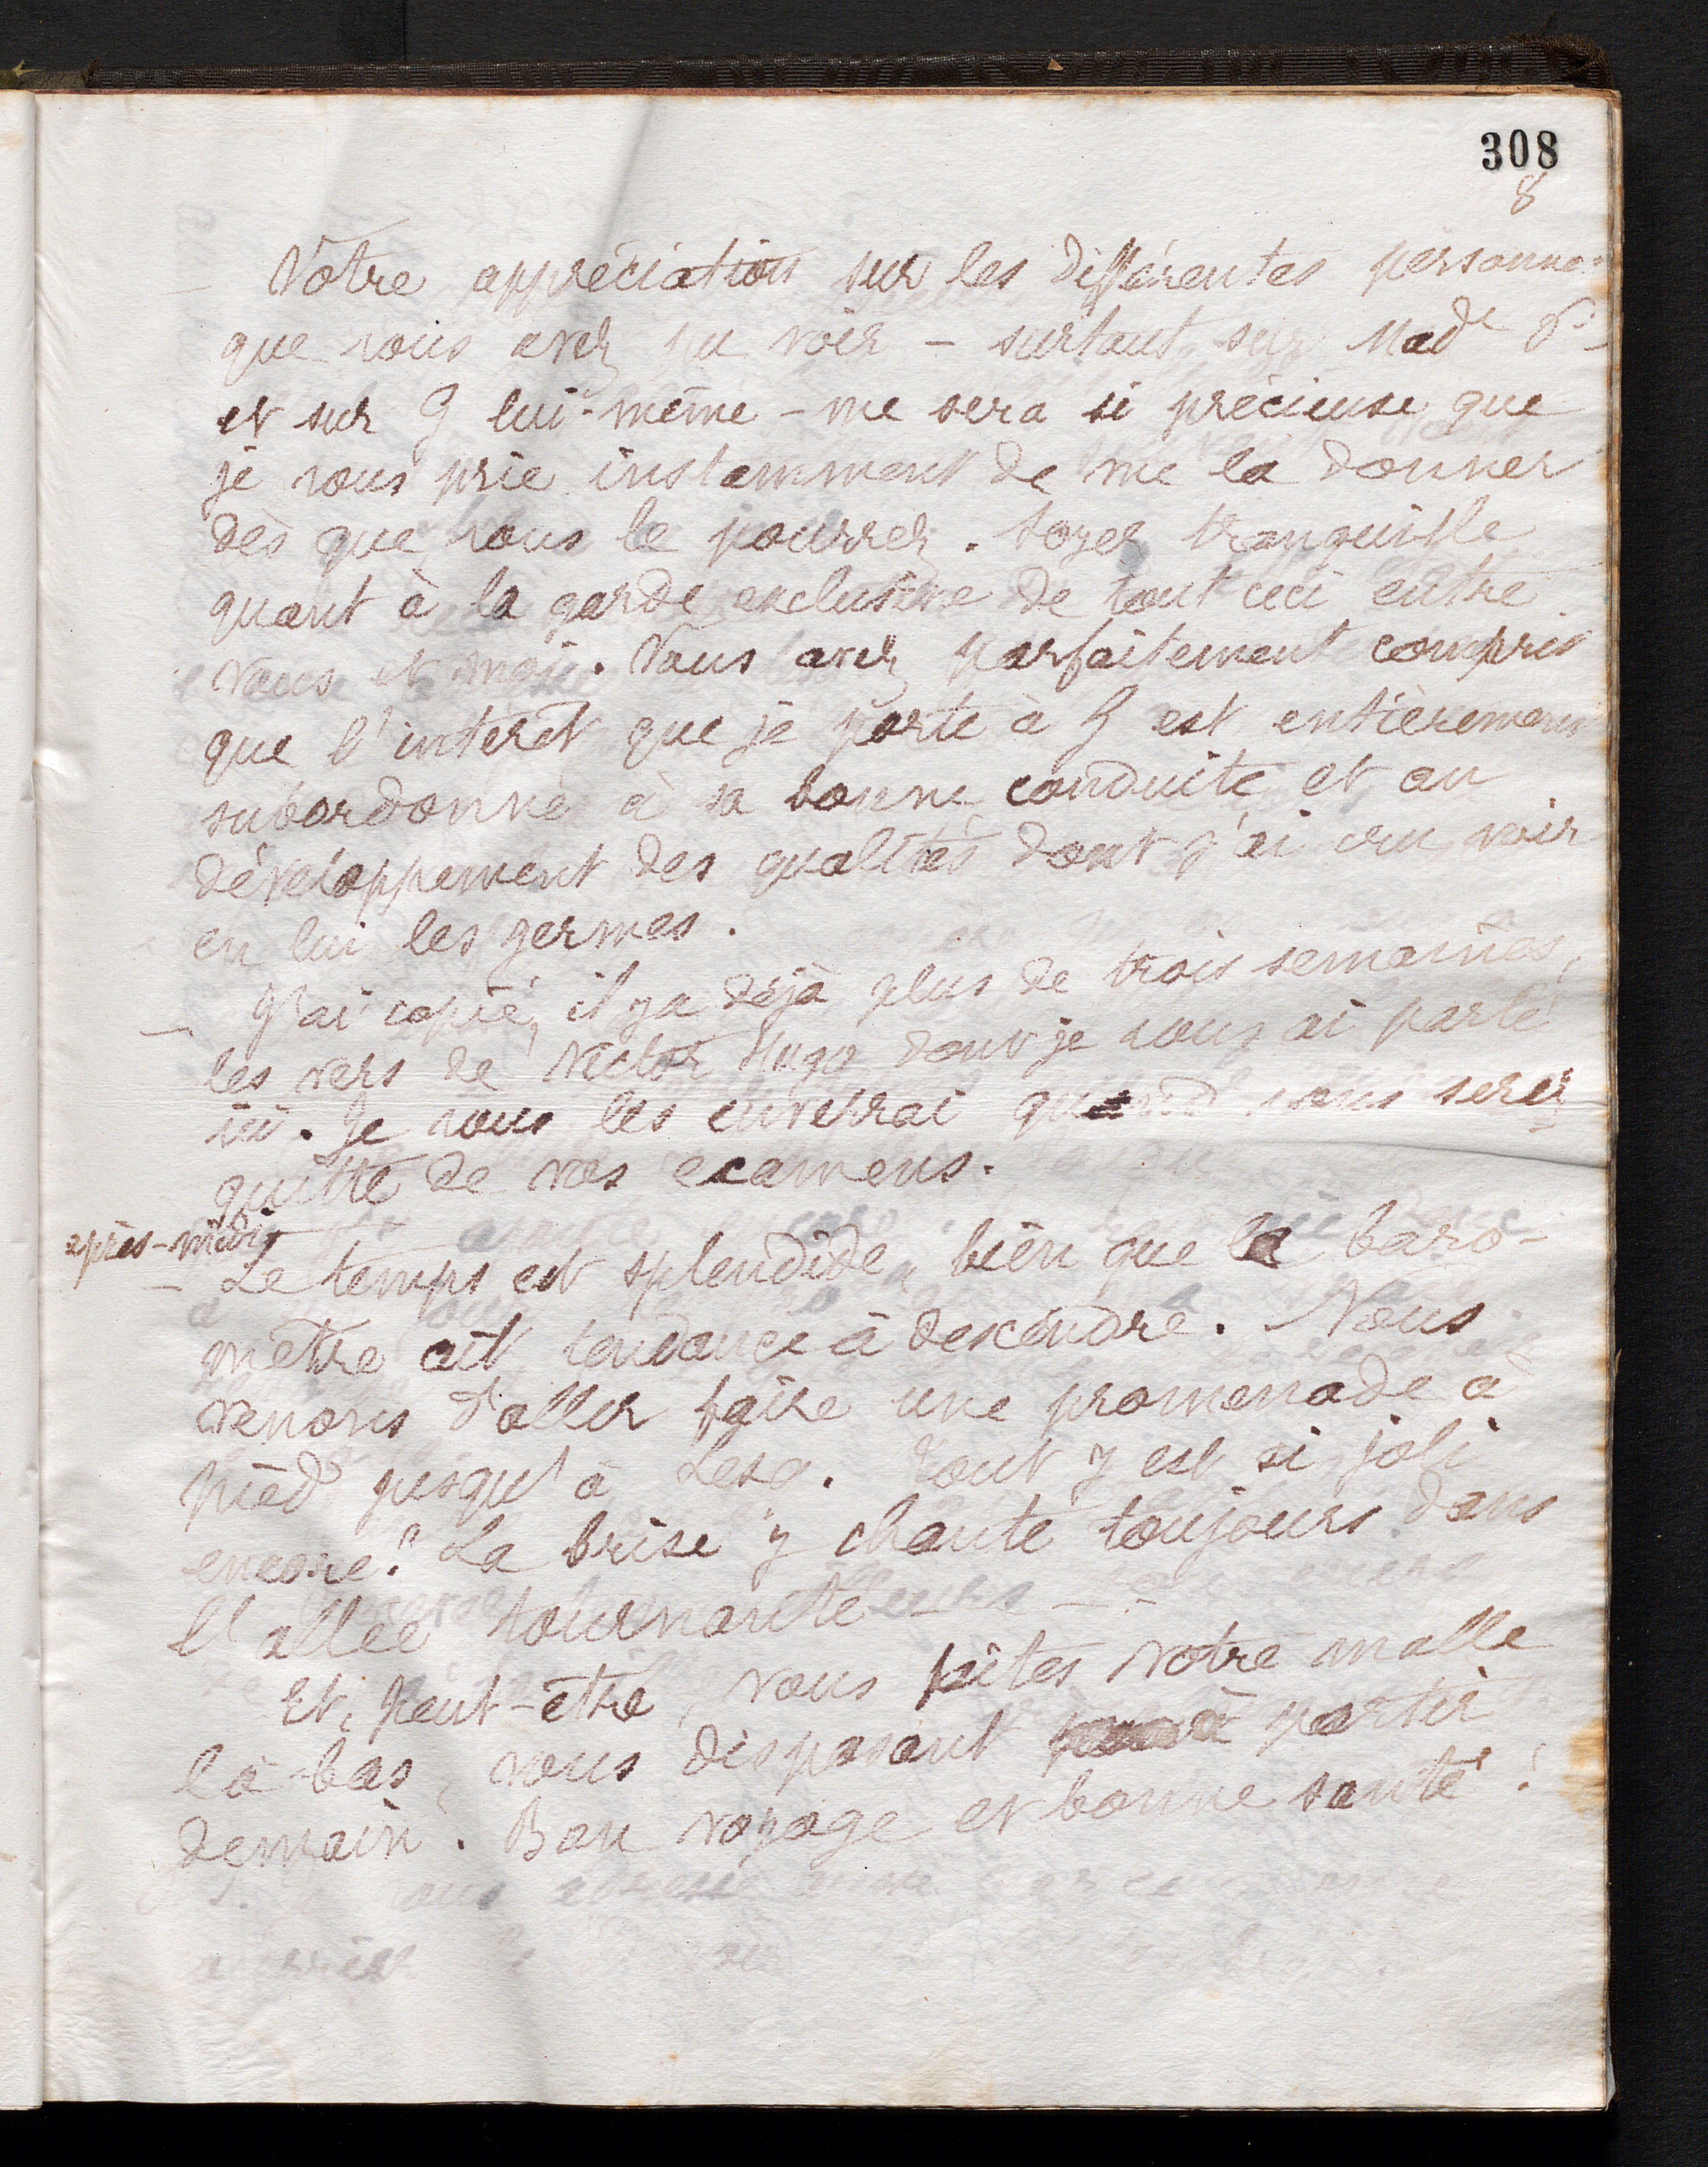 308
8
– Votre appréciation sur les différentes personnes
que vous avez pu voir – surtout sur Made P.
et sur G lui-même – me sera si précieuse que
je vous prie instamment de me la donner
dès que vous le pourrez. Soyez tranquille
quant à la garde exclusive de tout ceci entre
vous et moi. Vous avez parfaitement compris
que l'intérêt que je porte à G est entièrement
subordonné à sa bonne conduite et au
développement des qualités dont j'ai cru voir
en lui les germes.
– J'ai copié, il y a déjà plus de trois semaines,
les vers de Victor Hugo dont je vous ai parlé
ici. Je vous les enverrai quand vous serez
quitte de vos examens.
après-midi
– Le temps est splendide, bien que le baro-
mètre ait tendance à descendre. Nous
venons d'aller faire une promenade à
pied jusqu'à Lesa. Tout y est si joli
encore! La brise y chante toujours dans
l'allée tournante
Et, peut-être, vous faites votre malle
là-bas, vous disposant à partir
demain. Bon voyage et bonne santé!